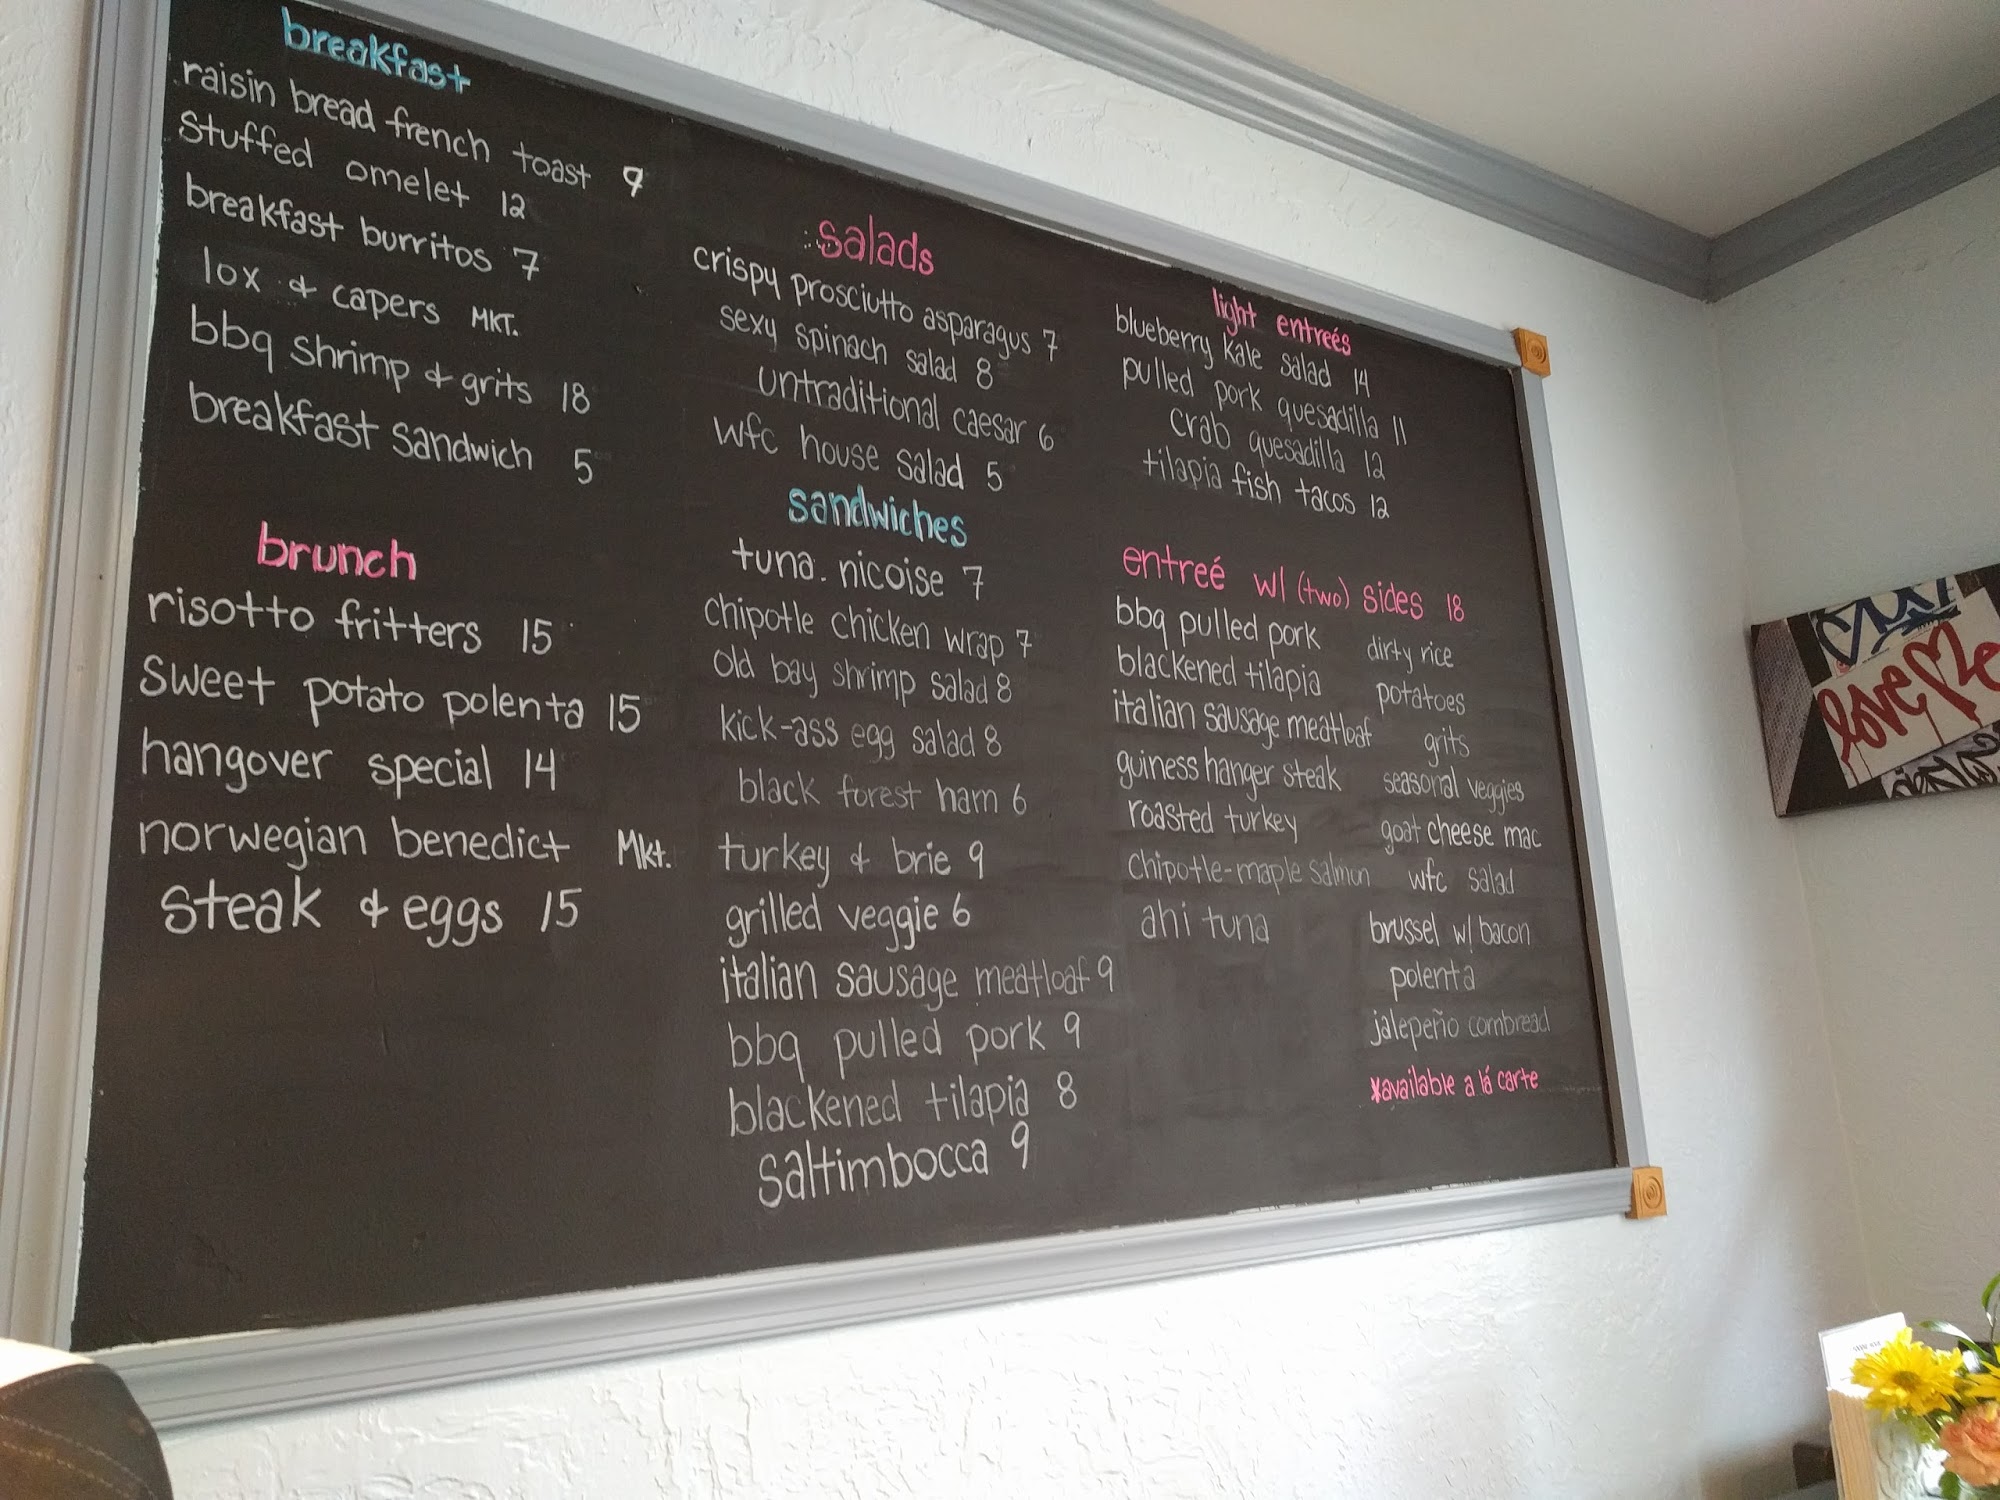 breakfast
raisin bread french toast 9
Stuffed omelet 12
breakfast burritos 7
lox & capers MKT.
bbq shrimp & grits 18
breakfast sandwich 5
brunch
risotto fritters 15
sweet potato polenta 15
hangover special 14
norwegian benedict Mkt.
steak & eggs 15
salads
crispy prosciutto asparagus 7
sexy spinach salad 8
untraditional caesar 6
wfc house salad 5
sandwiches
tuna. nicoise 7
chipotle chicken wrap 7
old bay shrimp salad 8
kick-ass egg salad 8
black forest ham 6
turkey & brie 9
grilled veggie 6
italian sausage meatloaf 9
bbq pulled pork 9
blackened tilapia 8
saltimbocca 9
light entreés
blueberry kale salad 14
pulled pork quesadilla 11
crab quesadilla 12
tilapia fish tacos 12
entreé w/ (two) sides 18
bbq pulled pork
blackened tilapia
italian sausage meatloaf
guiness hanger steak
roasted turkey
chipotle-maple salmon
ahi tuna
dirty rice
potatoes
grits
seasonal veggies
goat cheese mac
wfc salad
brussel w/ bacon
polenta
jalepeño cornbread
*available a lá carte
love Me